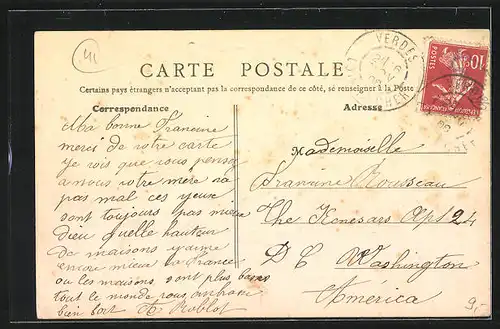 41
CARTE POSTALE
Certains pays étrangers n'acceptant pas la correspondance de ce côté, se renseigner à la Poste
Correspondance
Adresse
VERDES
24
POSTES
10
Ma bonne Francine
merci de votre carte
Je vois que vous pensez
a nous votre mère va
pas mal ces yeux
sont toujours pas mieux
dieu quelle hauteur
de maisons j'aime
encore mieux la France
ou les maisons sont plus basses
tout le monde vous
bien fort A Roblot
Mademoiselle
Francine Rousseau
The Kenesars Apt 24
D C Washington
América
9,-